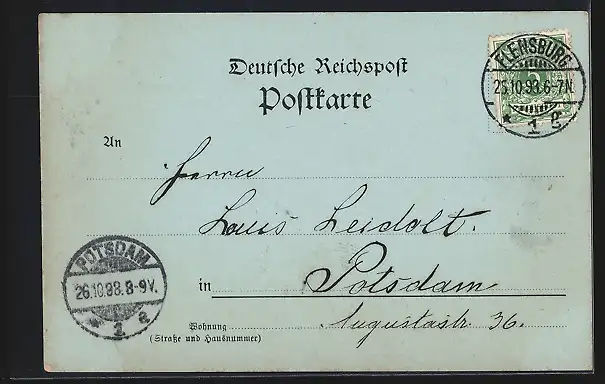 Deutsche Reichspost
Postkarte
FLENSBURG
25.10.98.6-7N.
* 1 g
An
Herrn
Louis Leidolt.
in Potsdam
Augustastr. 36.
Wohnung
(Straße und Hausnummer)
POTSDAM
26.10.98.8-9V.
* 1 a